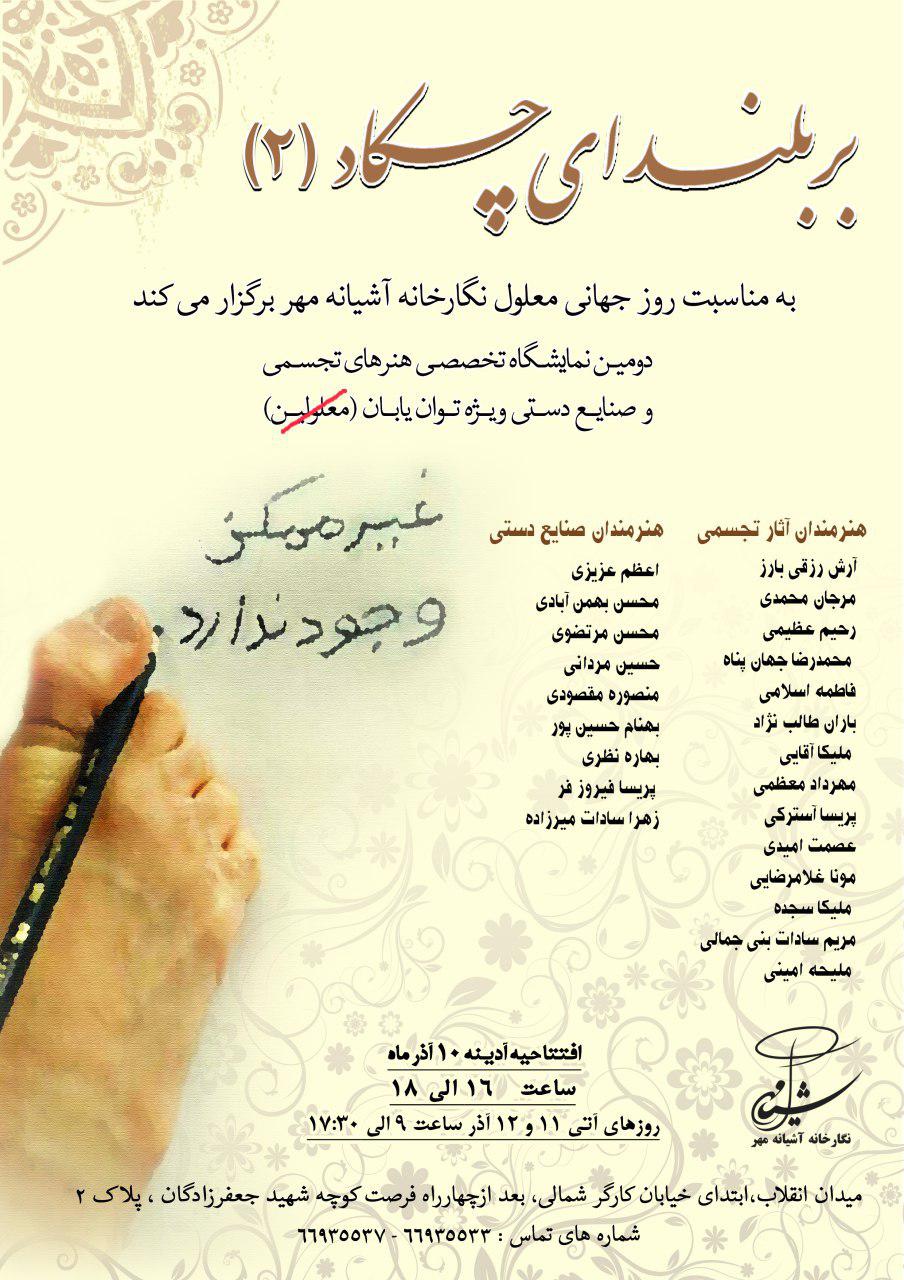 بر بلندای چکاد (۲)
به مناسبت روز جهانی معلول نگارخانه آشیانه مهر برگزار می کند
دومین نمایشگاه تخصصی هنرهای تجسمی
و صنایع دستی ویژه توان یابان (معلولین)
غیر ممکن
وجود ندارد.
هنرمندان آثار تجسمی
آرش رزقی بارز
مرجان محمدی
رحیم عظیمی
محمدرضا جهان پناه
فاطمه اسلامی
باران طالب نژاد
ملیکا آقایی
مهرداد معظمی
پریسا آسترکی
عصمت امیدی
مونا غلامرضایی
ملیکا سجده
مریم سادات بنی جمالی
ملیحه امینی
هنرمندان صنایع دستی
اعظم عزیزی
محسن بهمن آبادی
محسن مرتضوی
حسین مردانی
منصوره مقصودی
بهنام حسین پور
بهاره نظری
پریسا فیروز فر
زهرا سادات میرزاده
افتتاحیه آدینه ۱۰ آذر ماه
ساعت ۱۶ الی ۱۸
روزهای آتی ۱۱ و ۱۲ آذر ساعت ۹ الی ۱۷:۳۰
نگارخانه آشیانه مهر
میدان انقلاب،ابتدای خیابان کارگر شمالی، بعد ازچهارراه فرصت کوچه شهید جعفرزادگان ، پلاک ۲
شماره های تماس : ۶۶۹۳۵۵۳۳ - ۶۶۹۳۵۵۳۷